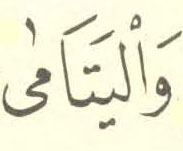 وَالْيَتَامَىٰ